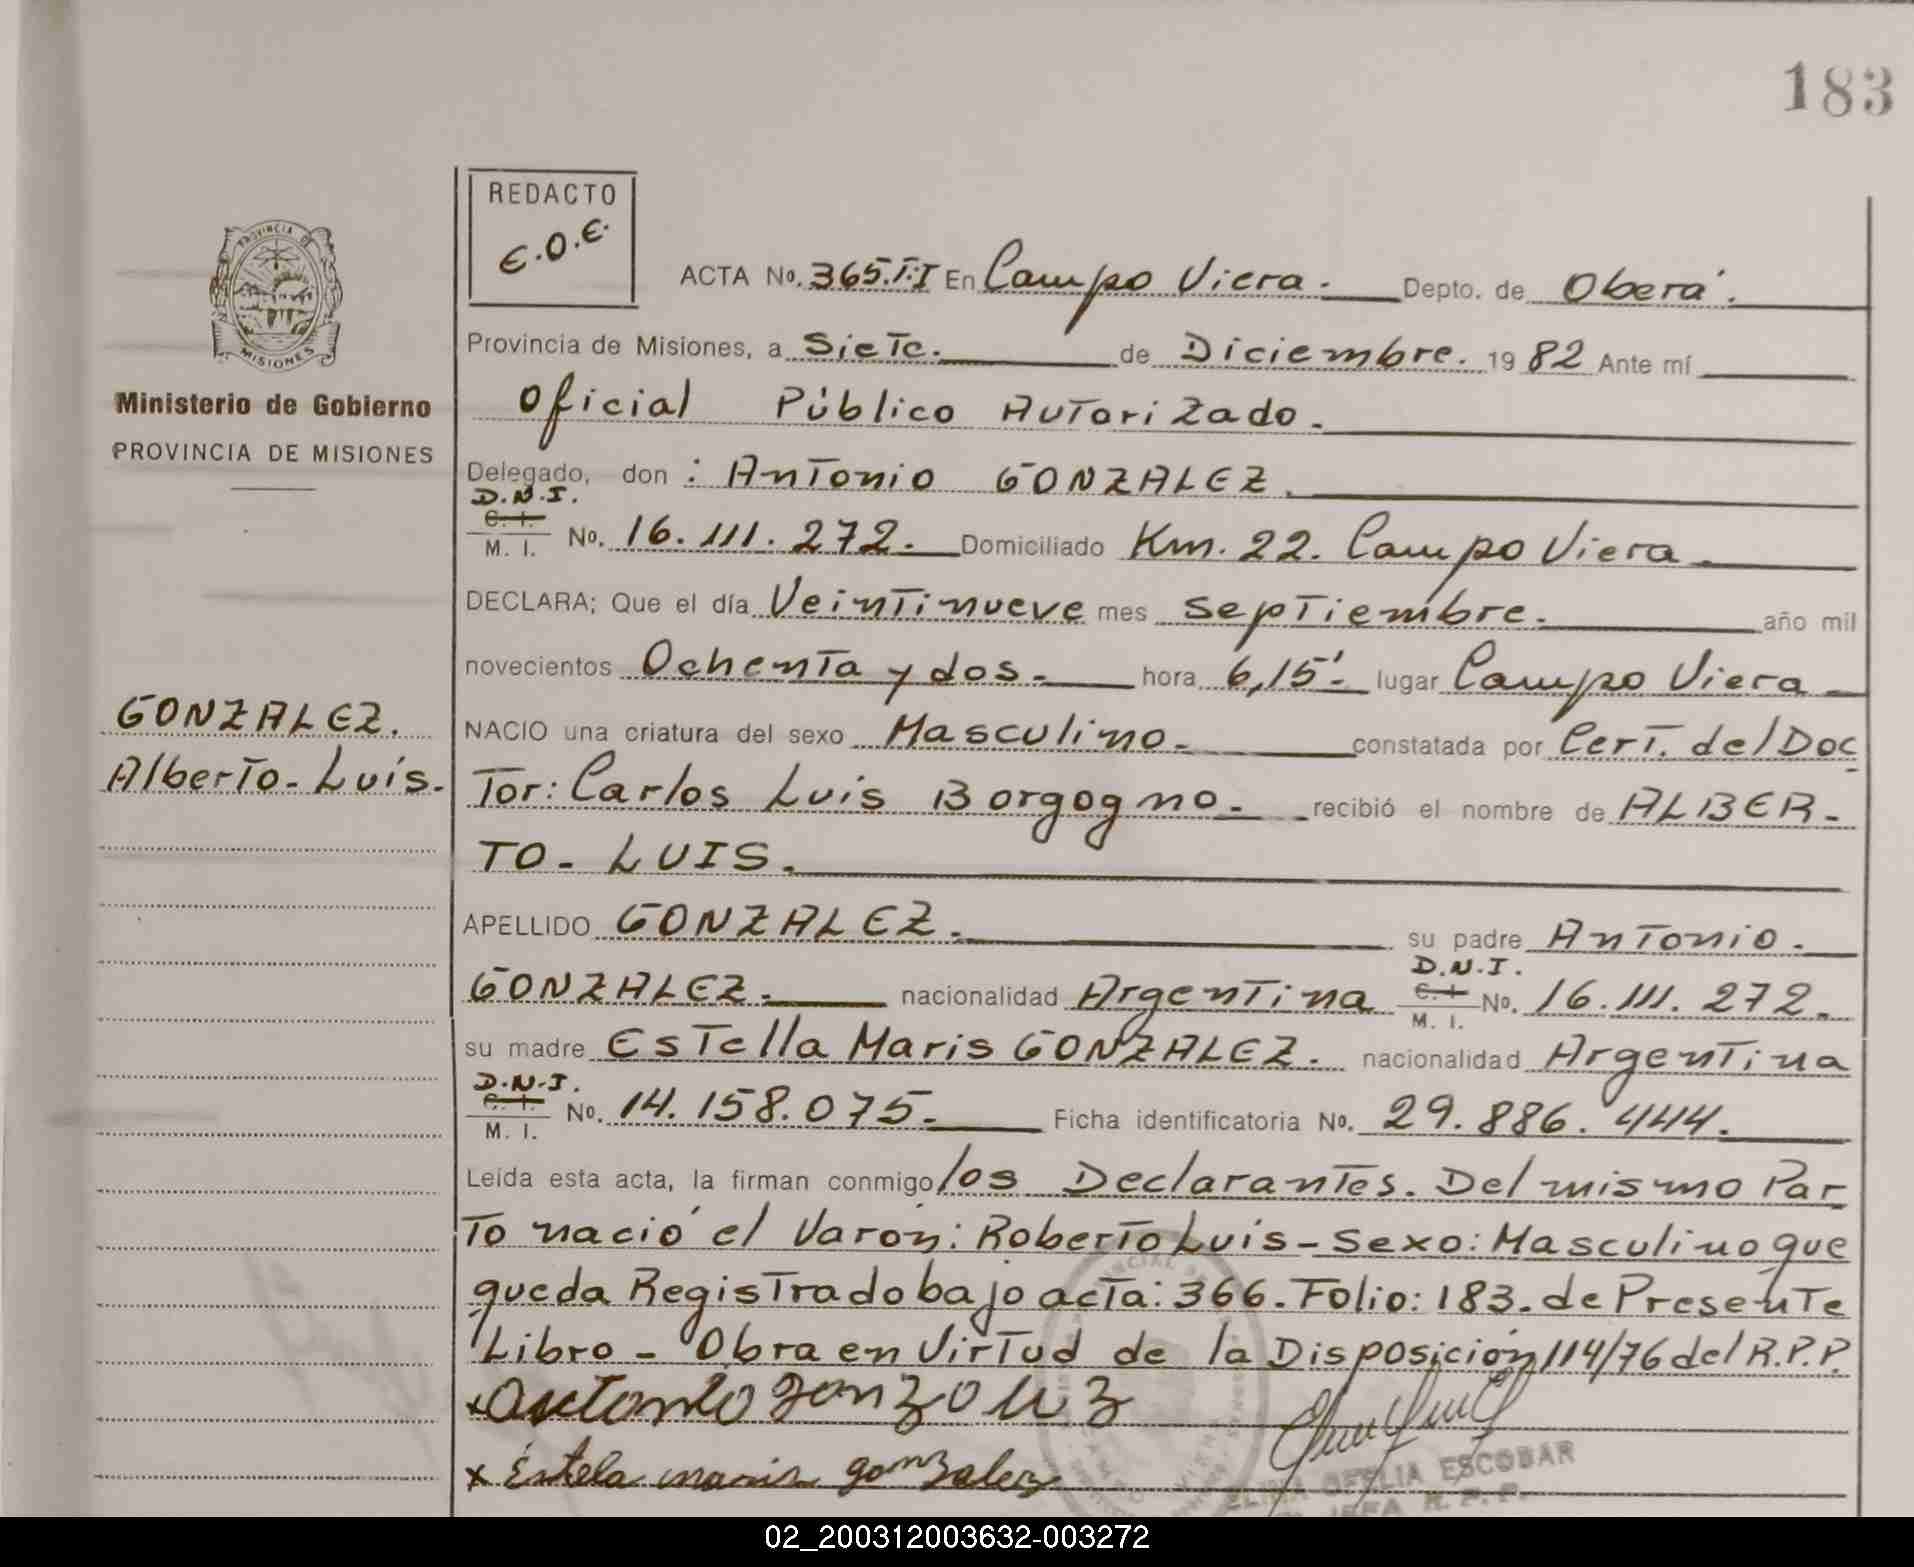 183
REDACTO
E.O.E.
PROVINCIA DE
MISIONES
Ministerio de Gobierno
PROVINCIA DE MISIONES
GONZALEZ.
Alberto-Luis.
ACTA No. 365.T:I En Campo Viera. Depto. de Oberá.
Provincia de Misiones, a Siete. de Diciembre. 1982 Ante mí
Oficial Público Autorizado.
Delegado, don : Antonio GONZALEZ.
D.N.I.
C. I.
M. I. No. 16.111.272. Domiciliado Km. 22. Campo Viera
DECLARA; Que el día Veintinueve mes septiembre. año mil
novecientos Ochenta y dos- hora 6,15'- lugar Campo Viera
NACIO una criatura del sexo Masculino- constatada por Cert. del Doc
Tor: Carlos Luis Borgogno- recibió el nombre de ALBER-
TO- LUIS.
APELLIDO GONZALEZ. su padre Antonio.
D.N.I.
GONZALEZ- nacionalidad Argentina C. I. M. I. No. 16.111.272.
su madre Estella Maris GONZALEZ. nacionalidad Argentina
D.N.I.
C. I.
M. I. No. 14.158.075- Ficha identificatoria No. 29.886.444.
Leída esta acta, la firman conmigo los Declarantes. Del mismo Par
To nació el Varón: Roberto Luis- Sexo: Masculino que
queda Registrado bajo acta: 366. Folio: 183. de Presente
Libro - Obra en Virtud de la Disposición 114/76 del R.P.P.
x Antonio gonzolez
x Estela maris gonzalez
OFELIA ESCOBAR
JEFA R. P. P.
02_200312003632-003272